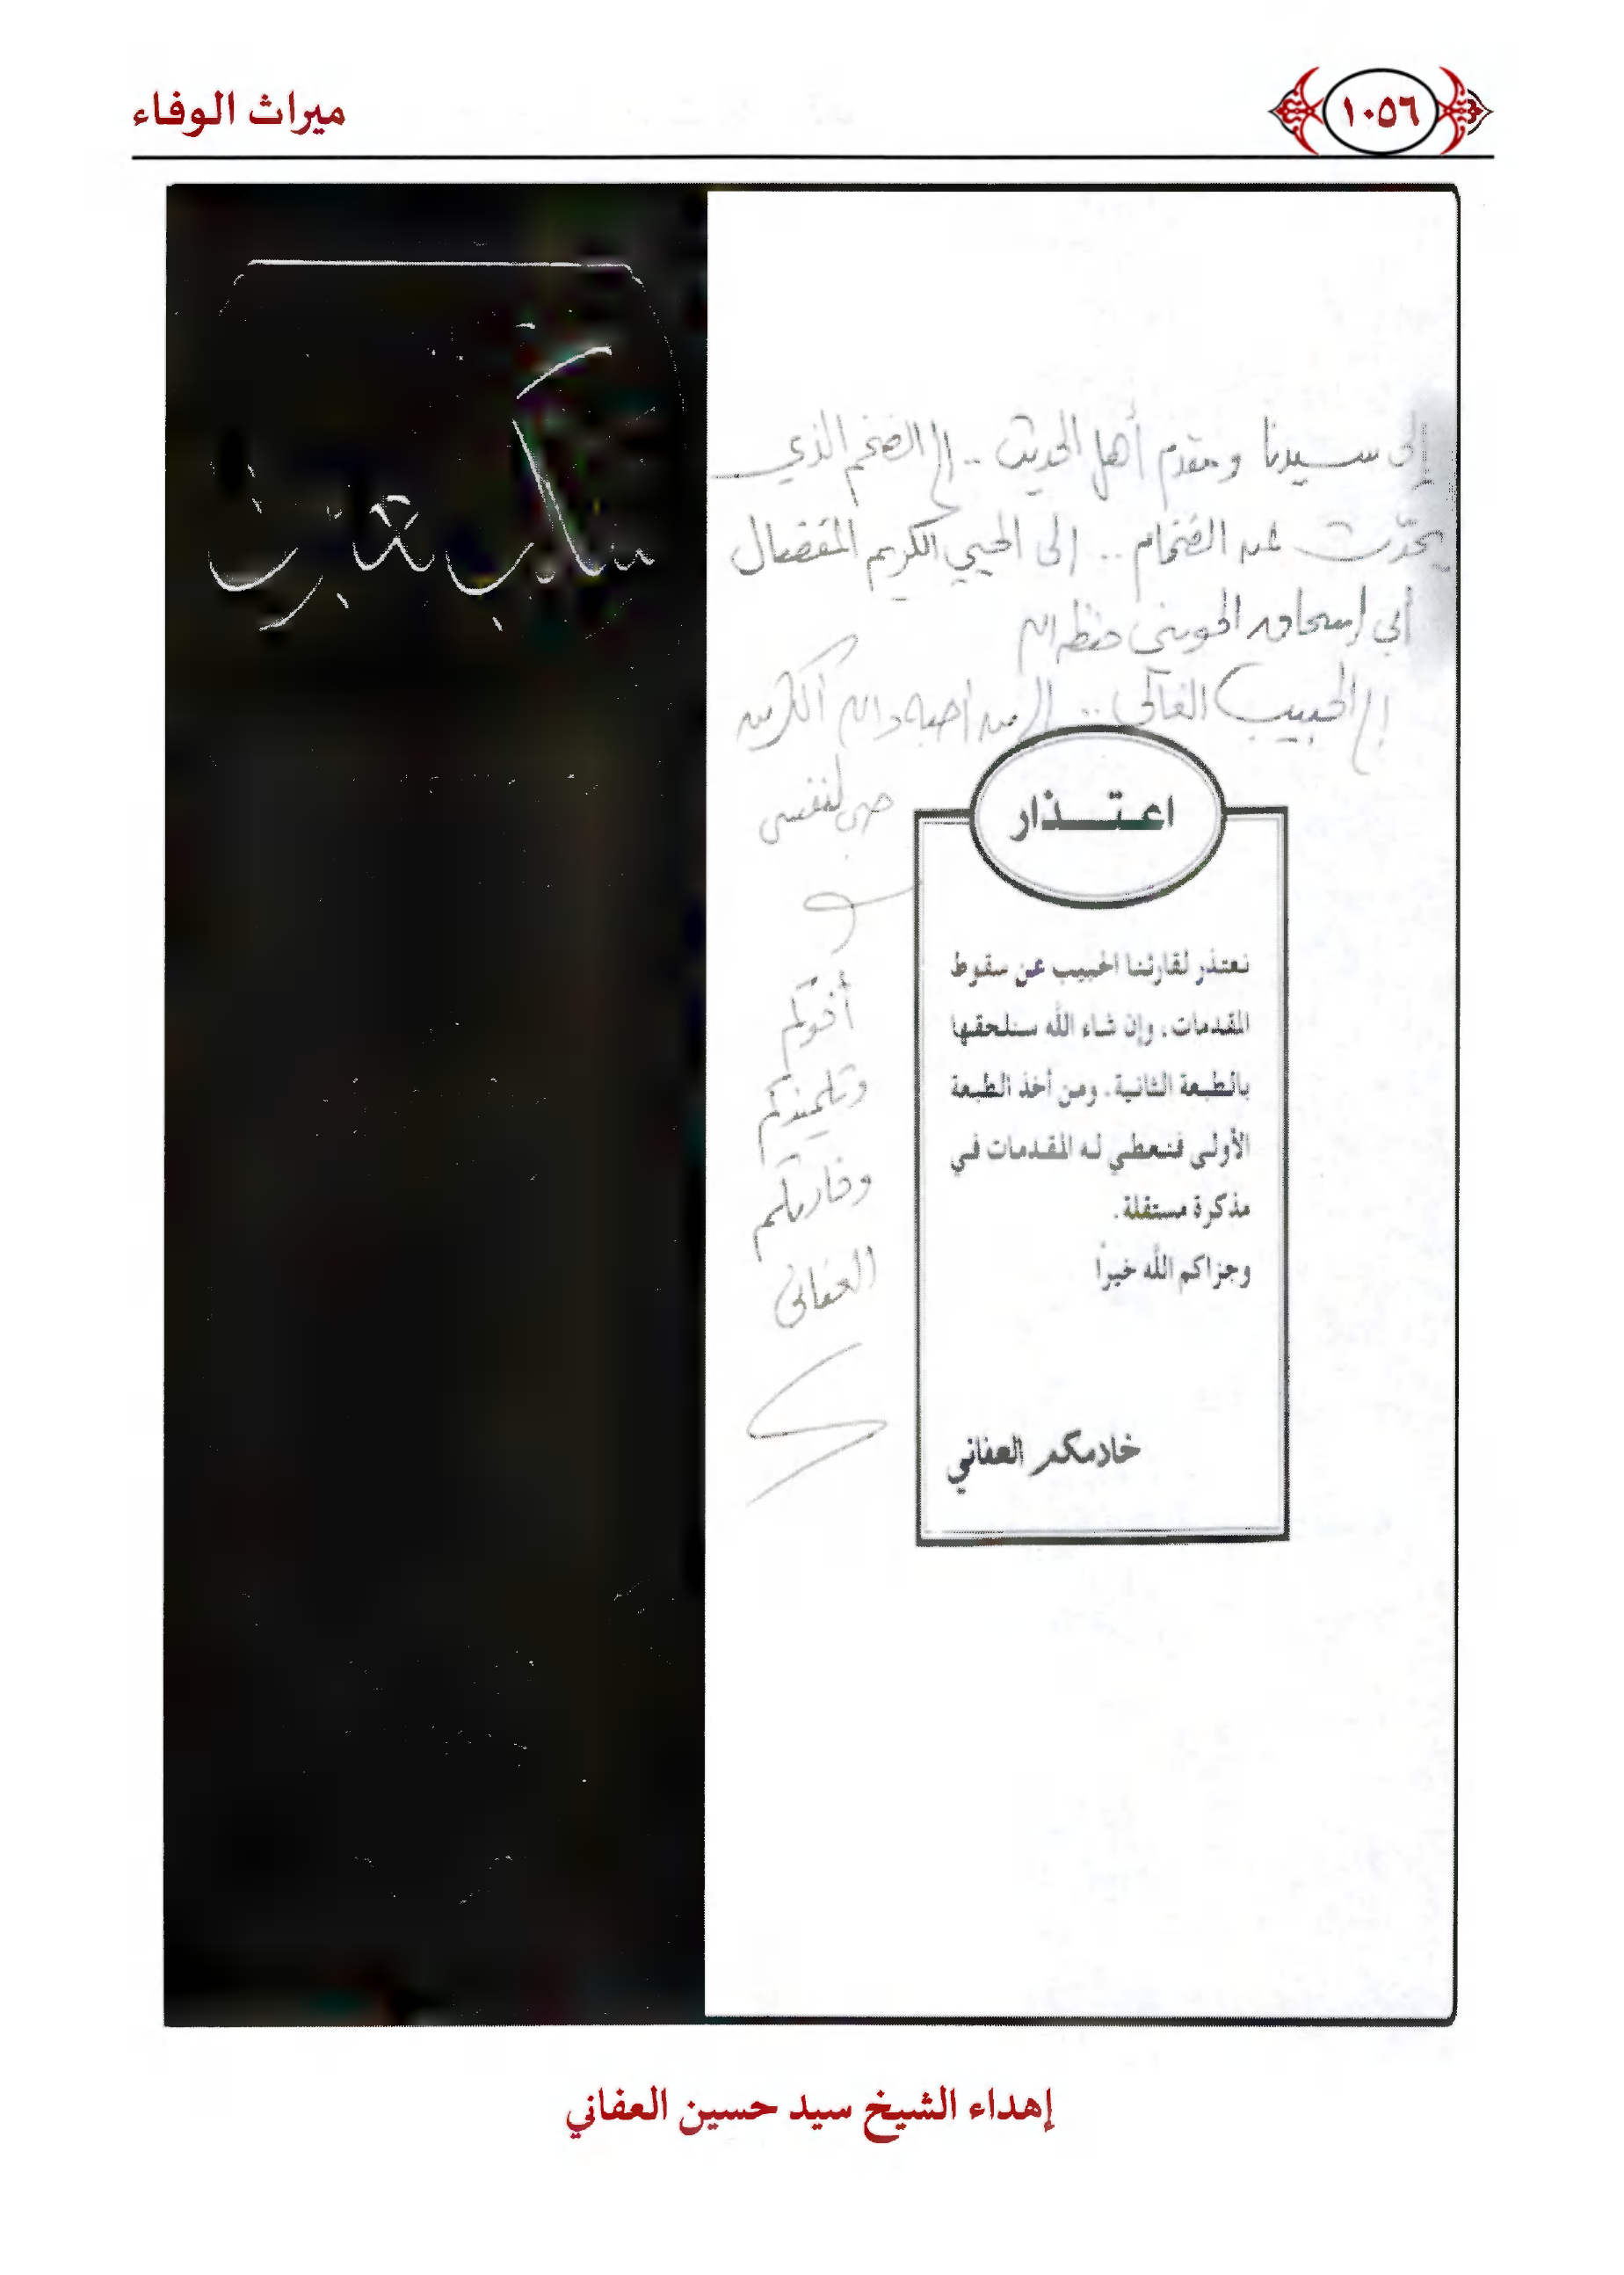 ميراث الوفاء
١٠٥٦
إلى سيدنا ومقدم أهل الحديث .. إلى الضخم الذي
يحدّث عن الضخام .. إلى الحيي الكريم المفضال
أبي إسحاق الحويني حفظه الله
إلى الحبيب الغالي .. إلى من أحبه والله أكثر من
حبي لنفسي
أخوكم
وتلميذكم
العفاني
اعتـــذار
نعتذر لقارئنا الحبيب عن سقوط
المقدمات، وإن شاء الله سنلحقها
بالطبعة الثانية. ومن أخذ الطبعة
الأولى فنعطي له المقدمات في
مذكرة مستقلة.
وجزاكم الله خيراً
خادمكم العفاني
إهداء الشيخ سيد حسين العفاني